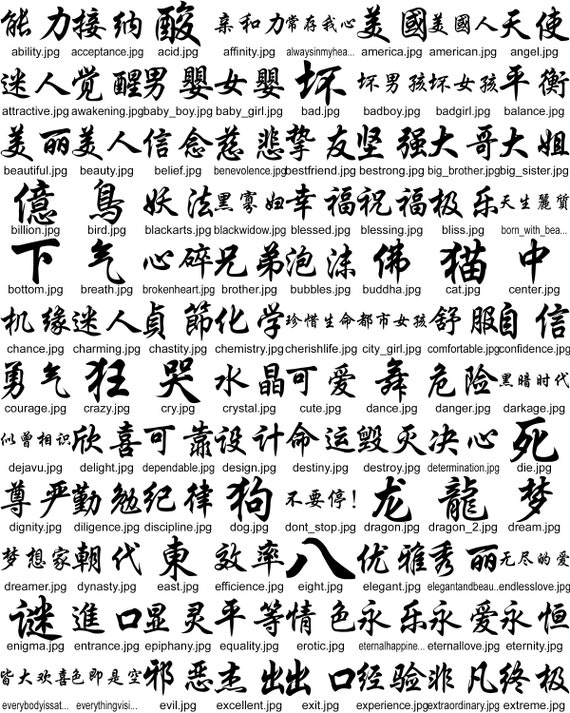 能力 接纳 酸 亲和力 常存我心 美國 美國人 天使
ability.jpg acceptance.jpg acid.jpg affinity.jpg alwaysinmyhea... america.jpg american.jpg angel.jpg
迷人 觉醒 男嬰 女嬰 坏 坏男孩 坏女孩 平衡
attractive.jpg awakening.jpg baby_boy.jpg baby_girl.jpg bad.jpg badboy.jpg badgirl.jpg balance.jpg
美丽 美人 信念 慈悲 挚友 坚强 大哥 大姐
beautiful.jpg beauty.jpg belief.jpg benevolence.jpg bestfriend.jpg bestrong.jpg big_brother.jpg big_sister.jpg
億 鳥 妖法 黑寡妇 幸福 祝福 极乐 天生麗質
billion.jpg bird.jpg blackarts.jpg blackwidow.jpg blessed.jpg blessing.jpg bliss.jpg born_with_bea...
下 气 心碎 兄弟 泡沫 佛 猫 中
bottom.jpg breath.jpg brokenheart.jpg brother.jpg bubbles.jpg buddha.jpg cat.jpg center.jpg
机缘 迷人 貞節 化学 珍惜生命 都市女孩 舒服 自信
chance.jpg charming.jpg chastity.jpg chemistry.jpg cherishlife.jpg city_girl.jpg comfortable.jpg confidence.jpg
勇气 狂 哭 水晶 可爱 舞 危险 黑暗时代
courage.jpg crazy.jpg cry.jpg crystal.jpg cute.jpg dance.jpg danger.jpg darkage.jpg
似曾相识 欣喜 可靠 设计 命运 毁灭 决心 死
dejavu.jpg delight.jpg dependable.jpg design.jpg destiny.jpg destroy.jpg determination.jpg die.jpg
尊严 勤勉 纪律 狗 不要停! 龙 龍 梦
dignity.jpg diligence.jpg discipline.jpg dog.jpg dont_stop.jpg dragon.jpg dragon_2.jpg dream.jpg
梦想家 朝代 東 效率 八 优雅 秀丽 无尽的爱
dreamer.jpg dynasty.jpg east.jpg efficience.jpg eight.jpg elegant.jpg elegantandbeau... endlesslove.jpg
谜 進口 显灵 平等 情色 永乐 永爱 永恒
enigma.jpg entrance.jpg epiphany.jpg equality.jpg erotic.jpg eternalhappine... eternallove.jpg eternity.jpg
皆大欢喜 色即是空 邪恶 杰出 出口 经验 非凡 终极
everybodyissat... everythingvisi... evil.jpg excellent.jpg exit.jpg experience.jpg extraordinary.jpg extreme.jpg